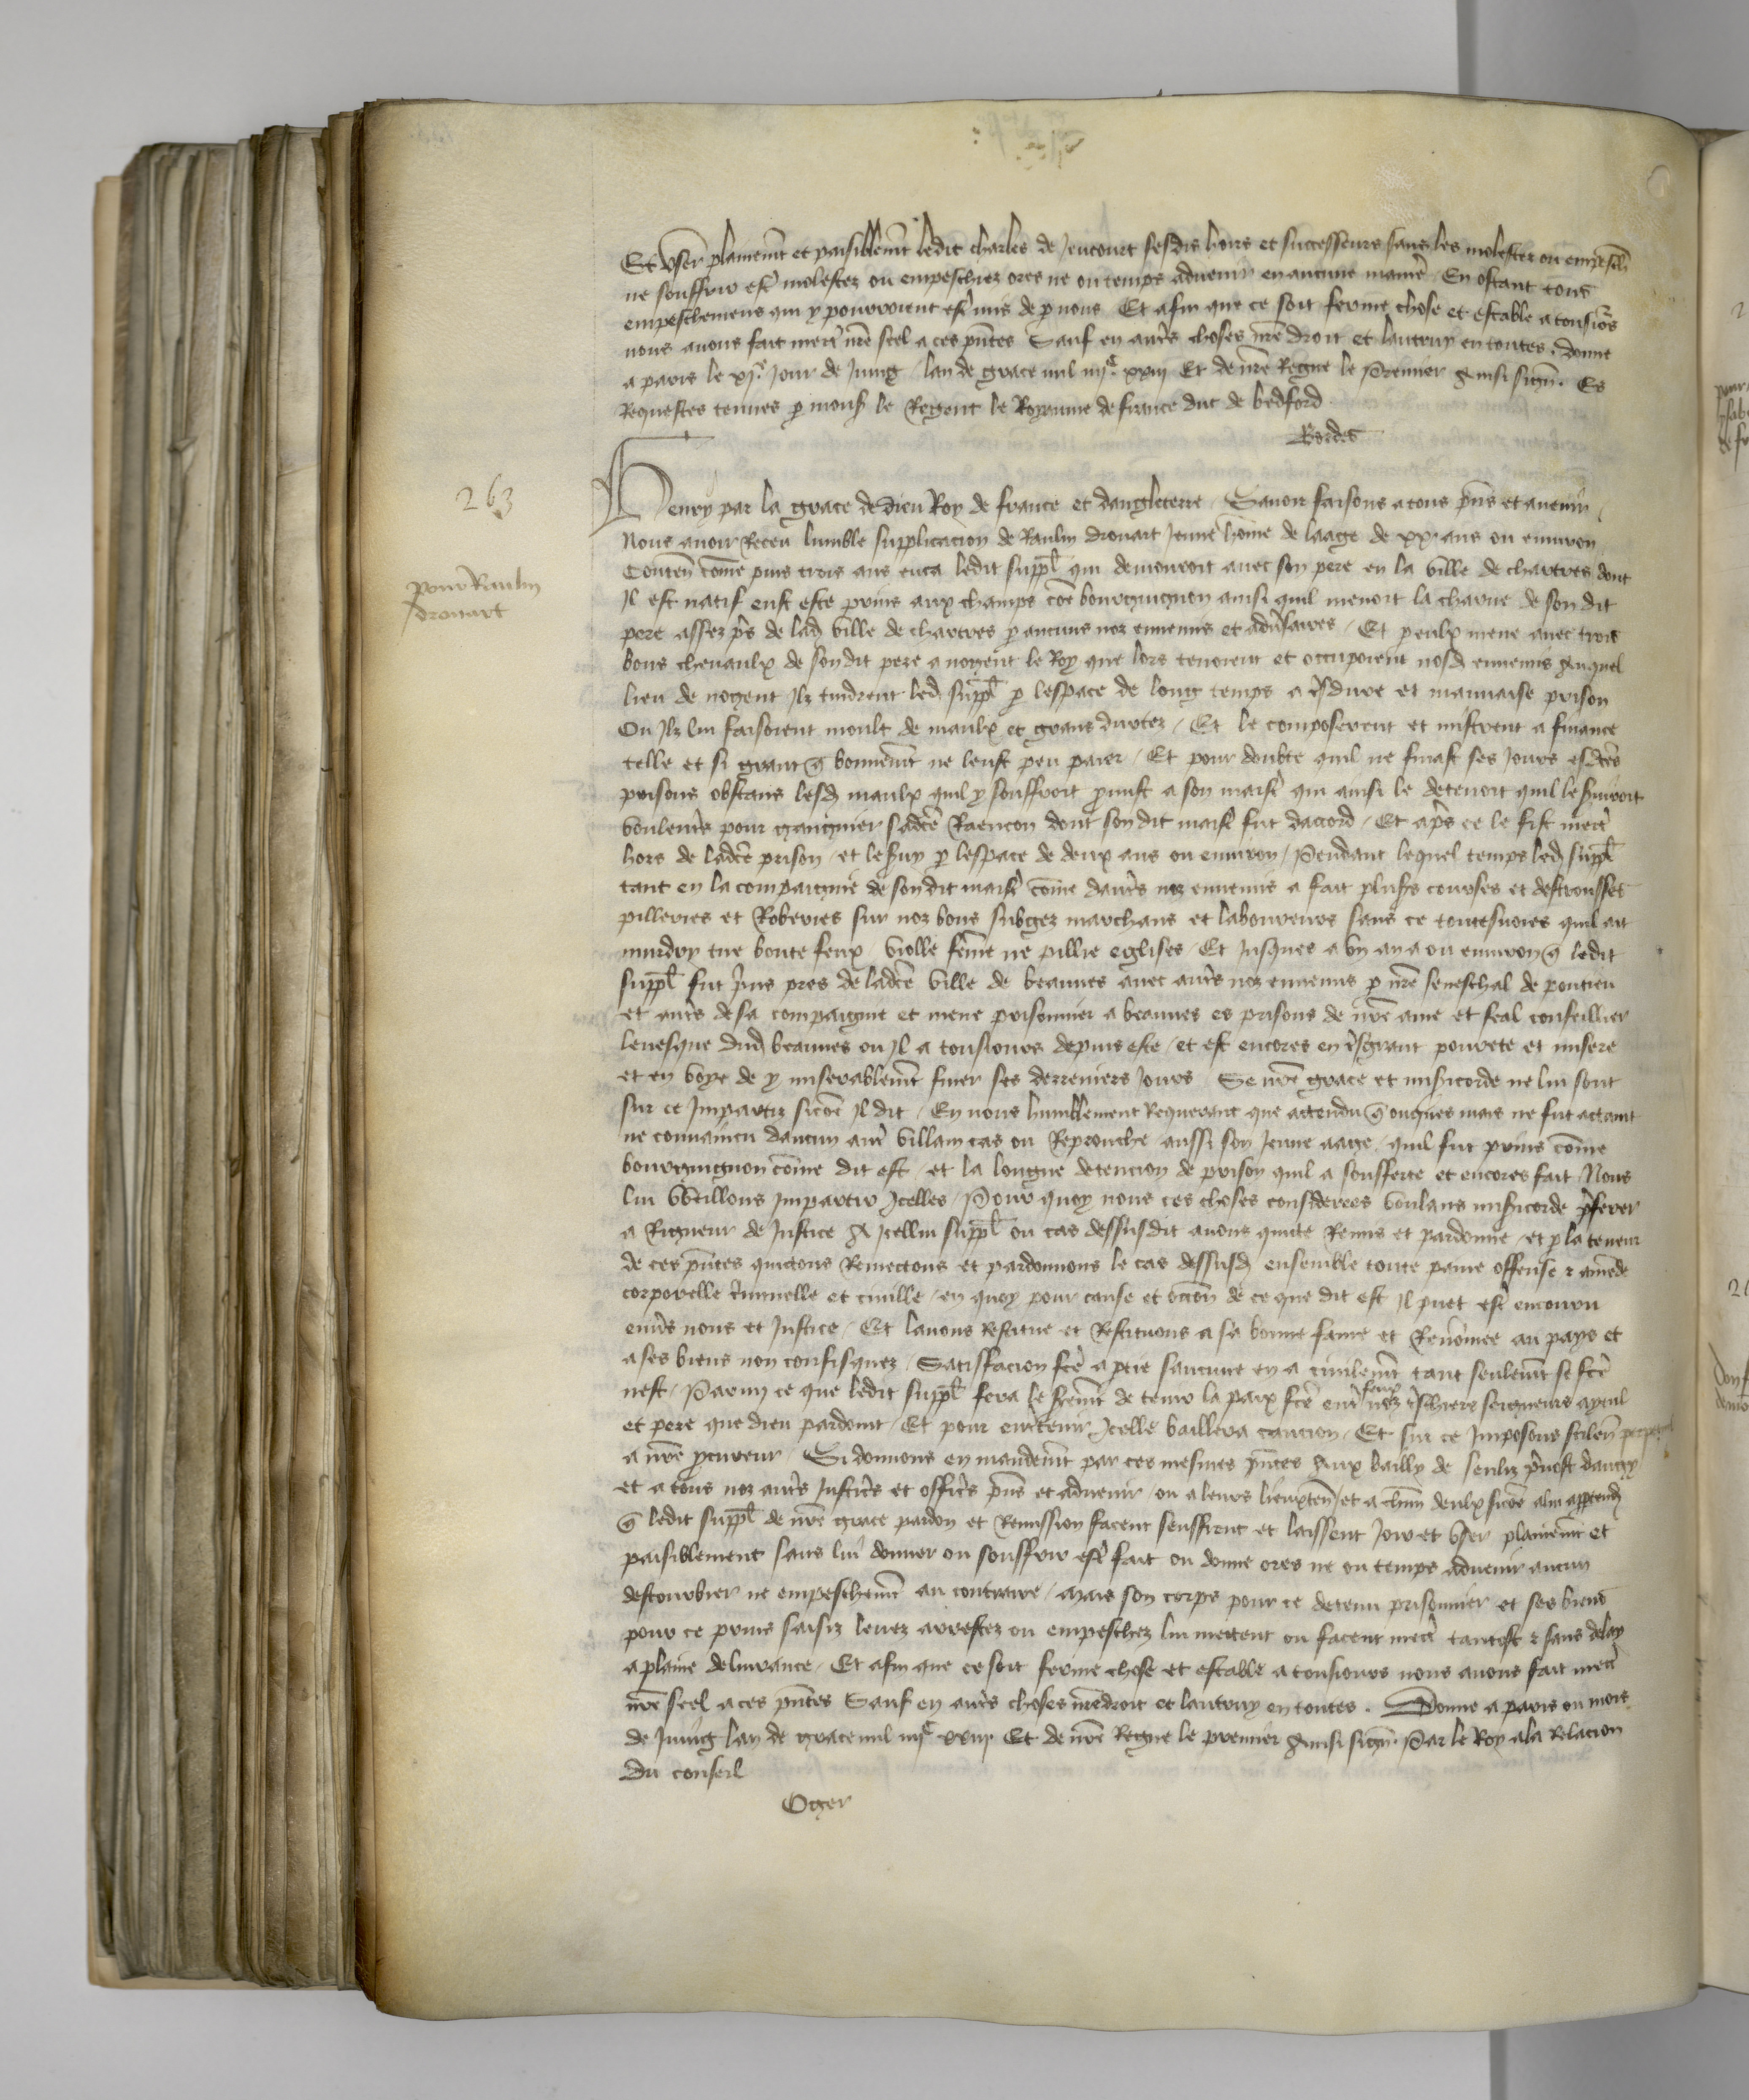 Et user plainemt et paisiblemt ledit charles de Jeucourt sesdis hoirs et successeurs sans les molester ou empesch
ne souffrir est molestez ou empeschiez ores ne ou temps advenir en aucune manie En ostant tous
empeschemens qui y pourroient est mis de p nous Et afin que ce soit ferme chose et estable a tousios
nous avons fait mett nre scel a ces pntes Sauf en autres choses nre droit et lautruy en toutes. donne
a paris le xje Jour de Juing lan de grace mil iiijc xxiij Et de nre Regne le Premier Ainsi sign. Es
Requestes tenues p mons le Regent le Royaume de france duc de bedford
Bordes
263
Henry par la grace de dieu Roy de france et dangleterre Savoir faisons a tous pns et avenir
Nous avoir Receu lumble supplicacion de Raulin drouart Jeune home de laage de xx ans ou environ
pour Raulin
drouart
Conten come puis trois ans enca ledit suppl qui demouroit avec son pere en la ville de chartres dont
Il est natif eust este prins aux champs coe bourguignon ainsi quil menoit la charue de son dit
pere assez pres de lad ville de chartres p aucuns noz ennemis et adversaires Et p eulx mene avec trois
bons chevaulx de son dit pere a nogent le Roy que lors tenoient et occupoient nosd ennemis Auquel
lieu de nogent Ilz tindrent led suppl p lespace de long temps a tsdure et mauvaise prison
Ou Ilz lui faisoient moult de maulx et grans durtez Et le composerent et mistrent a finance
telle et si grant q bonnemt ne leust peu paier Et pour doubte quil ne finast ses Jours esdtes
prisons obstans lesd maulx quil y souffroit promist a son maist qui ainsi le detenoit quil le serviroit
voulentes pour gaignier sadte Raencon dont son dit maist fut daccord Et apres ce le fist mett
hors de ladte prison et le servy p lespace de deux ans ou environ Pendant lequel temps led suppl
tant en la compaignie de son dit maist come dautres noz ennemis a fait pluss courses et destrousses
pilleries et Roberies sur noz bons subgez marchans et laboureurs sans ce toutesvoies quil ait
murdry tue boute feux viole feme ne pillie eglises Et Jusques a un an a ou environ q ledit
suppl fut pns pres de ladte ville de beauves avec autres noz ennemis p nre seneschal de pontieu
et autres de sa compaignie et mene prisonnier a beauves es prisons de nre ame et feal conseillier
levesque dud beauves ou Il a tousiours depuis este et est encores en tsgrant povrete et misere
et en voye de y miserablemt finer ses derreniers Jours Se nre grace et misericorde ne lui sont
sur ce Imparties sicoe Il dit En nous humblement Requerant que attendu q onques mais ne fut attaint
ne convaincu daucun autre villain cas ou Reprouche aussi son Jeune aage quil fut prins come
bourguignon come dit est et la longue detencion de prison quil a soufferte et encores fait Nous
lui Vueillons Impartir Icelles Pour quoy nous ces choses considerees voulans misericorde pferer
a Rigueur de Justice A Icellui suppl ou cas dessusdit avons quicte Remis et pardonne et p la teneur
de ces pntes quictons Remectons et pardonnons le cas dessusd ensemble toute paine offense & amede
corporelle criminelle et civille en quoy pour cause et occon de ce que dit est Il puet est encouru
envers nous et Justice Et lavons Restitue et Restituons a sa bonne fame et Renomee au pays et
a ses biens non confisquez Satisfacion fcte a ptie saucune en a civilemt tant seulemt se fcte
nest Parmy ce que ledit suppl fera le sermt de tenir la paix fcte entre feux noz tschiers seigneurs ayeul
et pere que dieu pardoint Et pour entretenir Icelle baillera caucion Et sur ce Imposons silen perpetuel
a nre procureur Si donnons en mandemt par ces mesmes pntes Aux bailly de senliz prevost dangy
et a tous noz autres Justiciers et officiers pns et advenir ou a leurs lieuxten et a chun deulx sicoe a lui apptend
q ledit suppl de nre grace pardon et Remission facent seuffrent et laissent Joir et user plainemt et
paisiblement sans lui donner ou souffrir est fait ou donne ores ne ou temps advenir aucun
destourbier ne empeschemt au contraire Mais son corps pour ce detenu prisonnier et ses biens
pour ce prins saisiz levez arrestez ou empeschez lui mettent ou facent mett tantost & sans delay
a plaine delivrance Et afin que ce soit ferme chose et estable a tousiours nous avons fait mett
nre scel a ces pntes Sauf en autres choses nredroit et lautruy en toutes. Donne a paris ou mois
de Juing lan de grace mil iiijc xxiij Et de nre Regne le premier Ainsi sign. Par le Roy a la Relacion
Du conseil
Oger